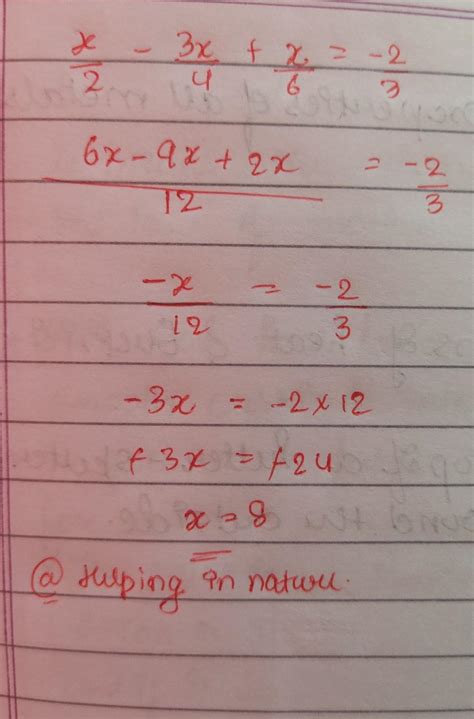 x/2 - 3x/4 + x/6 = -2/3
6x - 9x + 2x / 12 = -2/3
-x/12 = -2/3
-3x = -2 x 12
+3x = +24
x = 8
@ Helping in nature.